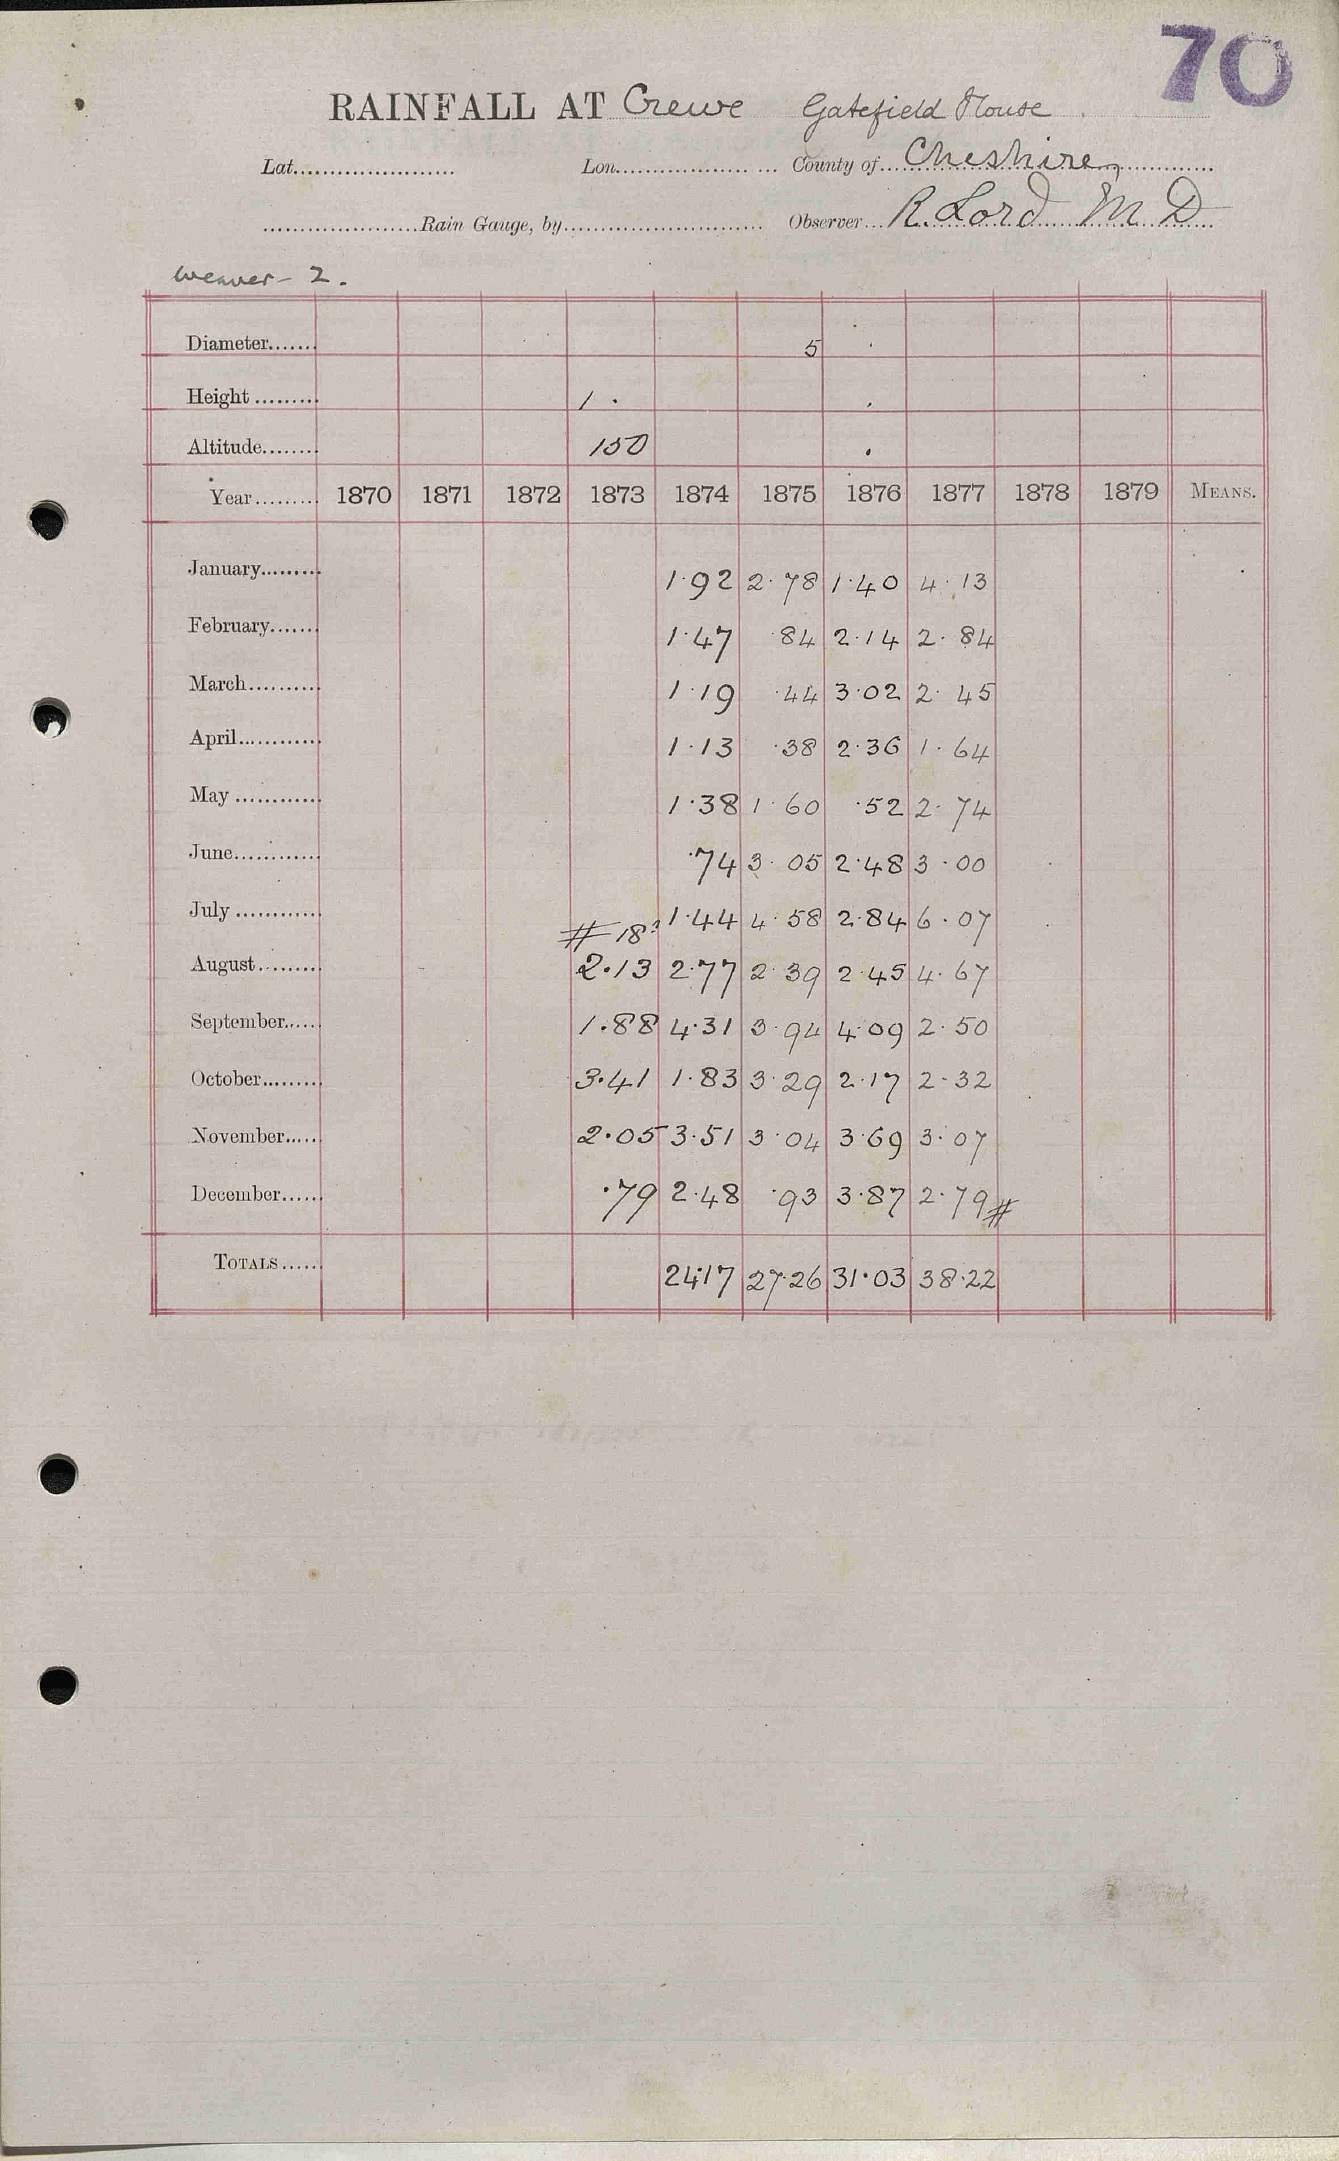 70
RAINFALL AT Crewe Gatefield House
Lat. Lon. County of Cheshire
Rain Gauge, by Observer R. Lord M D
Weaver - 2.
Diameter 5
Height 1 ·
Altitude 150
Year 1870 1871 1872 1873 1874 1875 1876 1877 1878 1879 MEANS.
January 1·92 2·78 1·40 4·13
February 1·47 ·84 2·14 2·84
March 1·19 ·44 3·02 2·45
April 1·13 ·38 2·36 1·64
May 1·38 1·60 ·52 2·74
June ·74 3·05 2·48 3·00
July # 18 1·44 4·58 2·84 6·07
August 2·13 2·77 2·39 2·45 4·67
September 1·88 4·31 3·94 4·09 2·50
October 3·41 1·83 3·29 2·17 2·32
November 2·05 3·51 3·04 3·69 3·07
December ·79 2·48 ·93 3·87 2·79 #
TOTALS 24·17 27·26 31·03 38·22